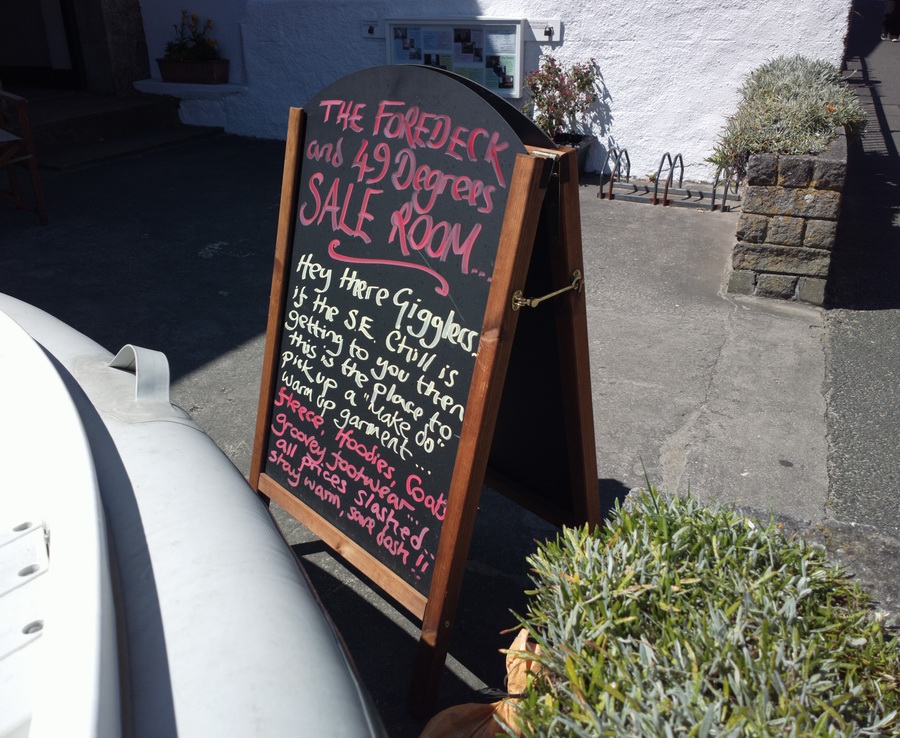 THE FOREDECK
and 49 Degrees
SALE ROOM...
Hey there Gigglers,
if the S.E. Chill is
getting to you then
this is the place to
pick up a "Make do"
warm up garment...
fleece, Hoodies, Coats
groovey footwear...
all prices slashed..
stay warm, save dosh!!